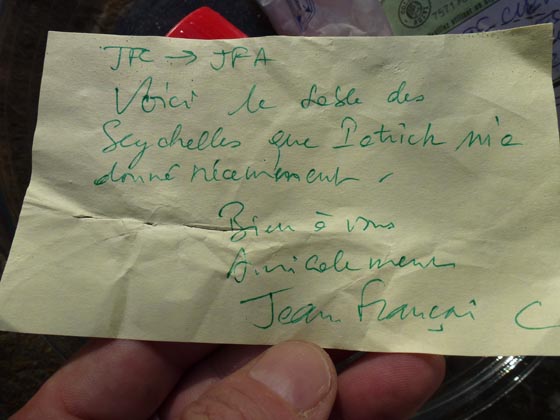 JFC → JFA
Voici le sable des
Seychelles que Patrick m'a
donné récemment.
Bien à vous
Amicalement
Jean François C